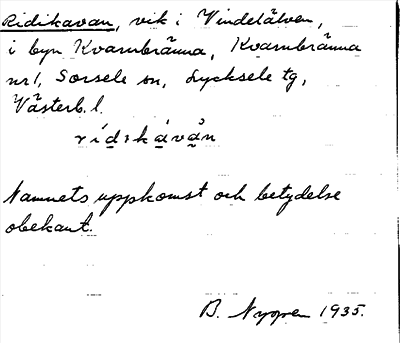 Ridikavan, vik i Vindelälven,
i byn Kvarnbränna, Kvarnbränna
nr 1, Sorsele sn, Lycksele tg,
Västerb. l.
Namnets uppkomst och betydelse
obekant.
B. Nygren 1935.